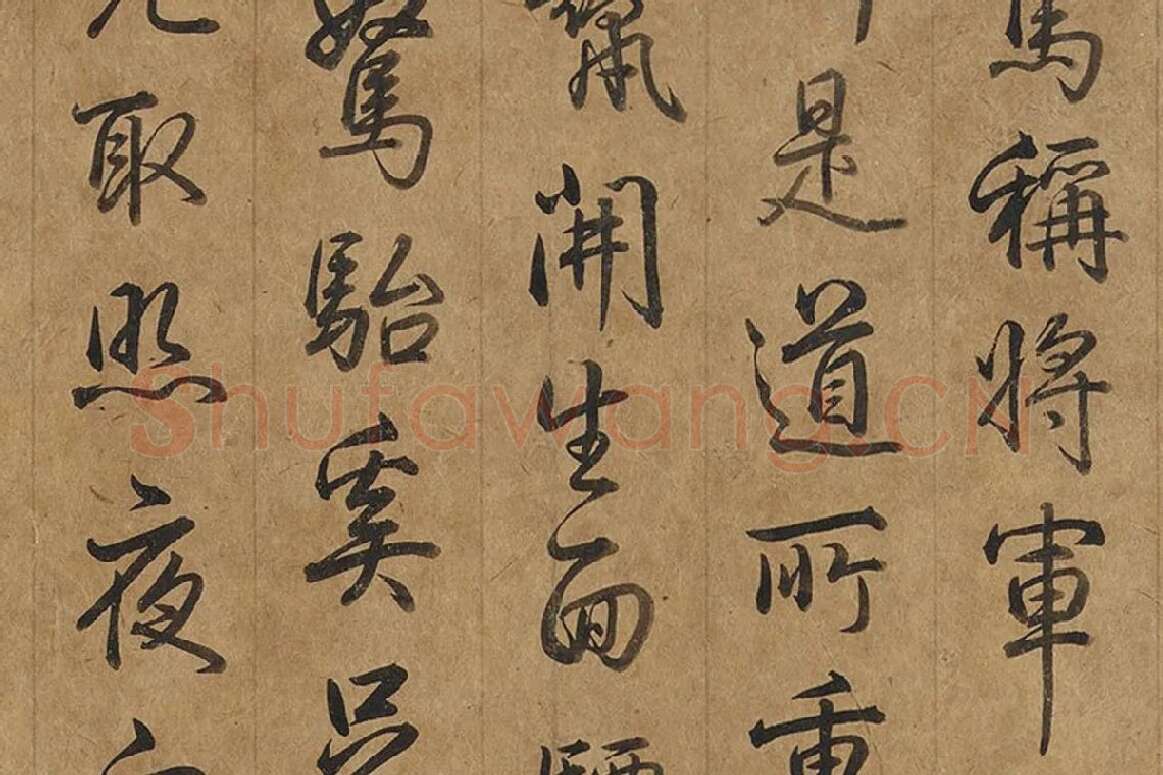 馬稱將軍
是道所重
開生面
駑駘奚
取照夜
Shufawang.CN